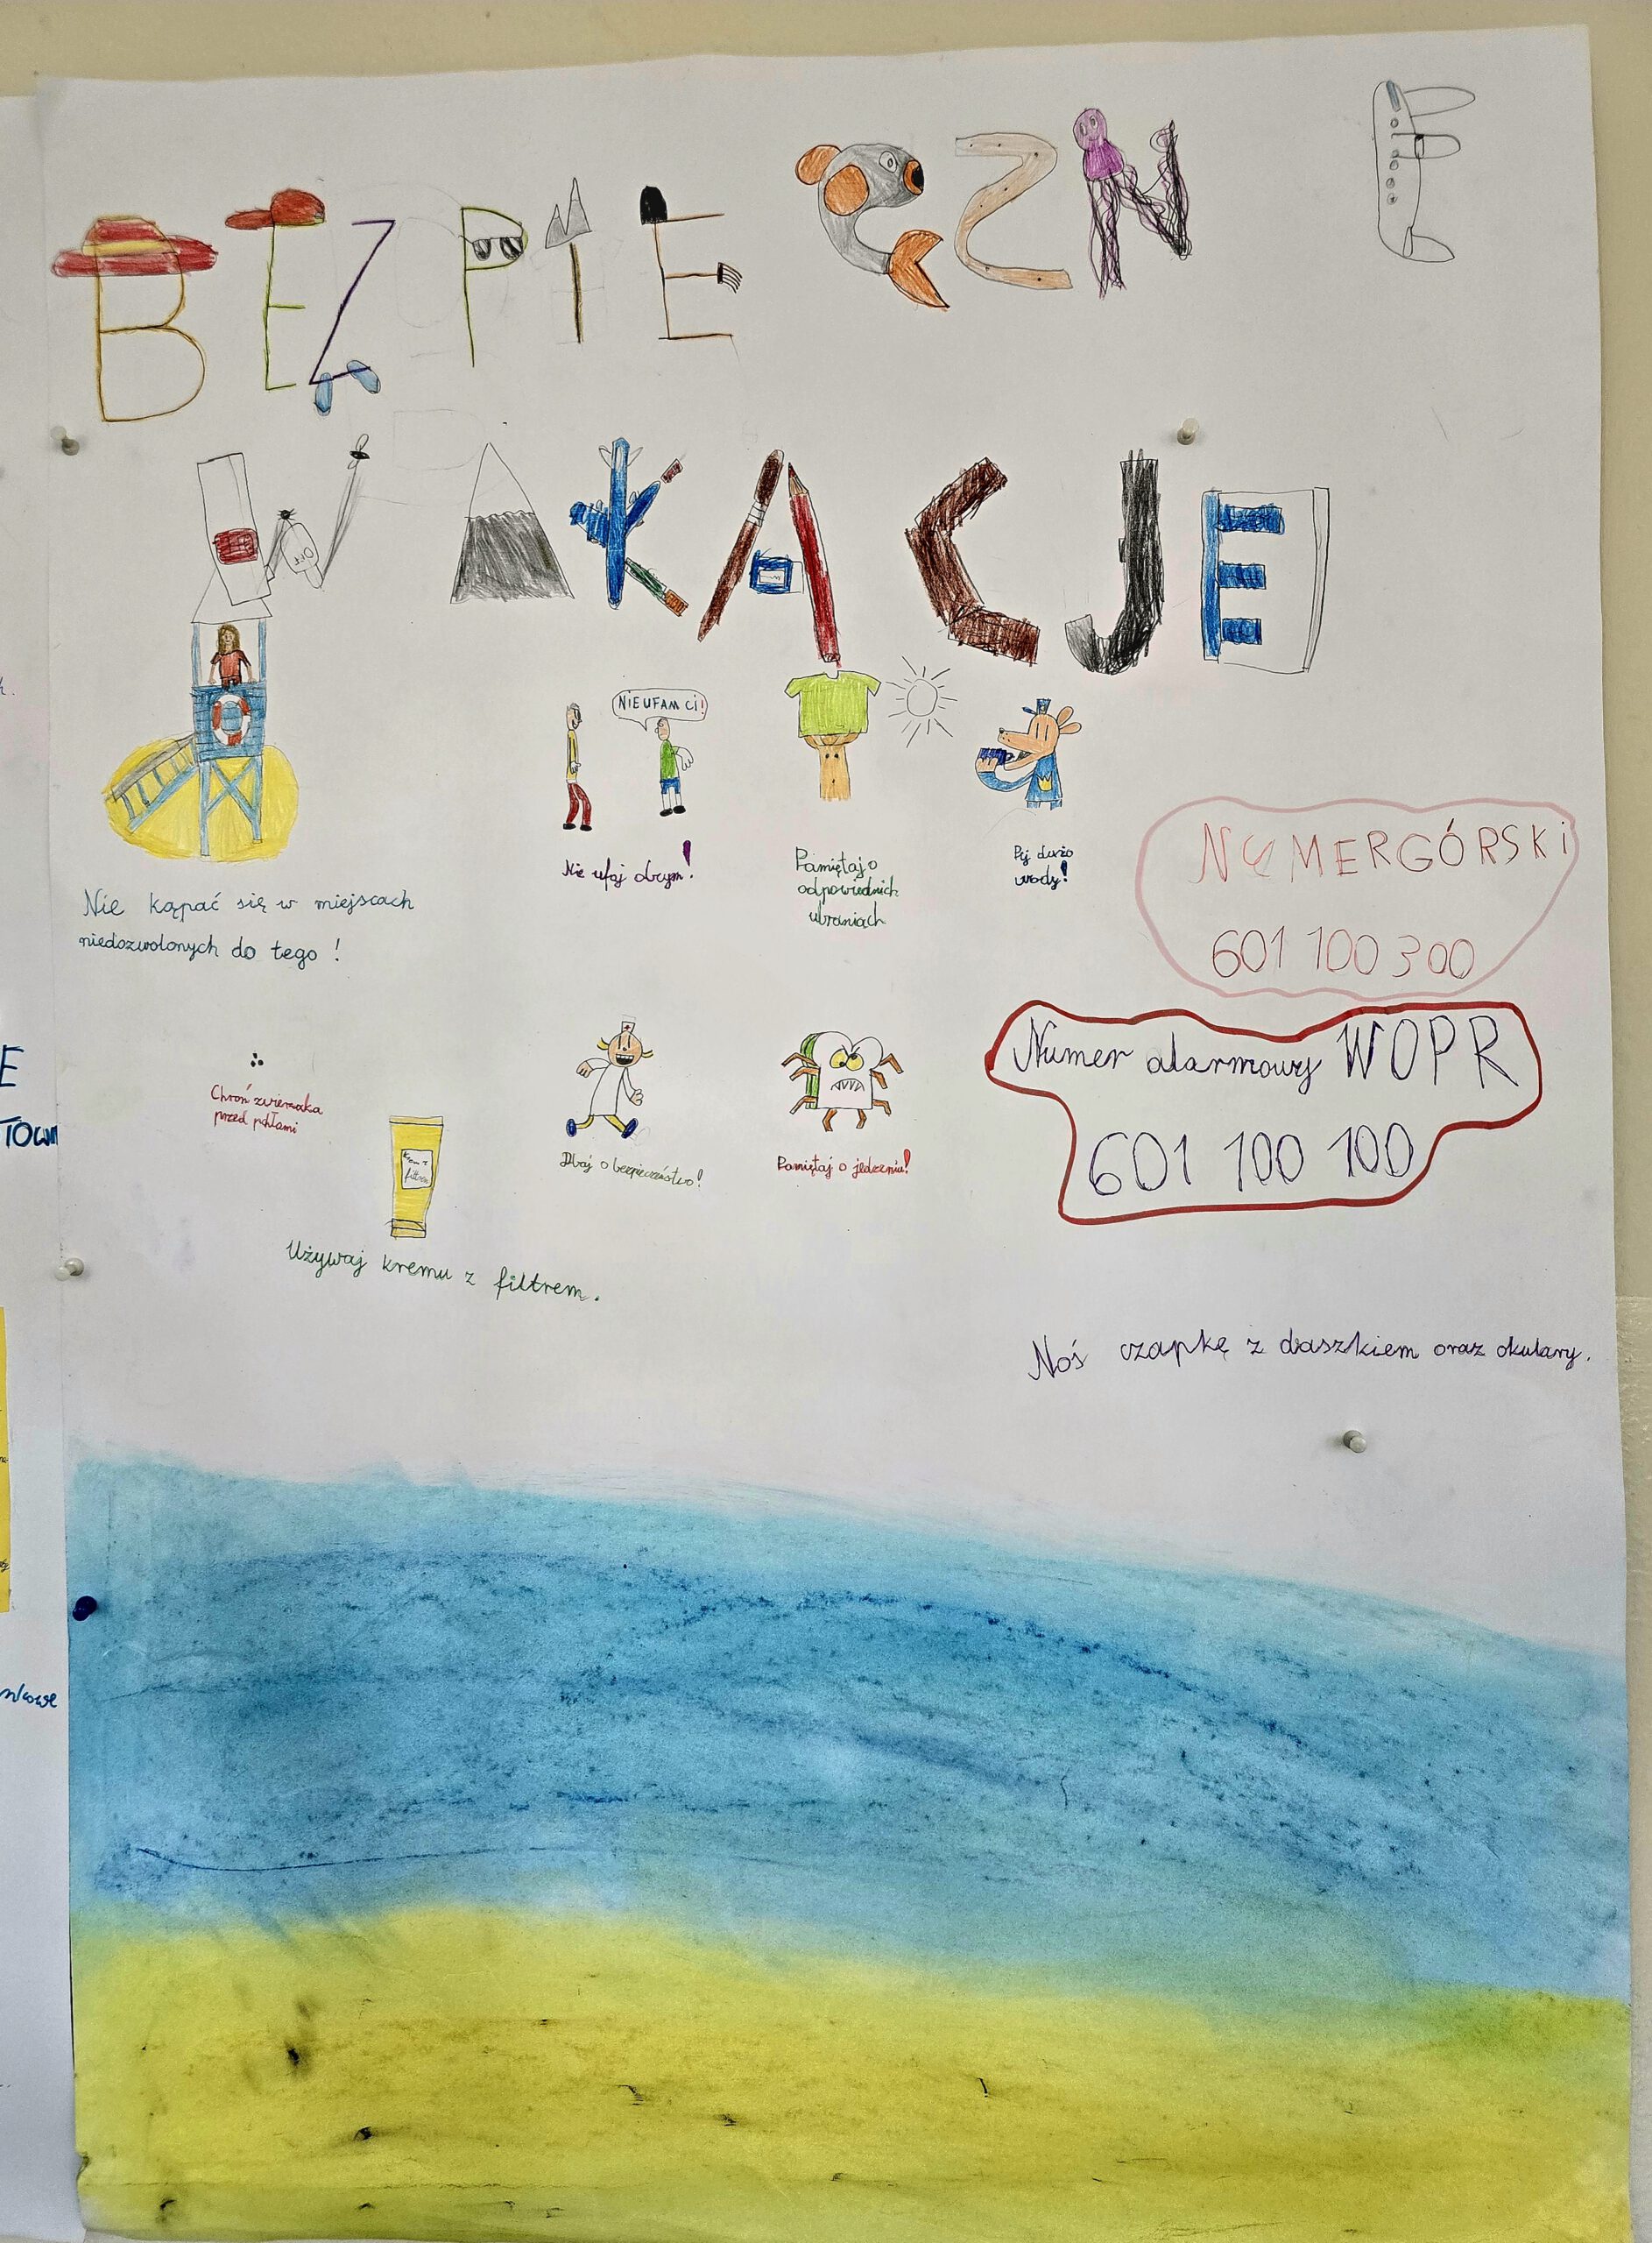 BEZPIECZNE
WAKACJE
NIE UFAM CI!
Nie ufaj obcym!
Pamiętaj o
odpowiednich
ubraniach
Pij dużo
wody!
NUMER GÓRSKI
601 100 300
Nie kąpać się w miejscach
niedozwolonych do tego !
Numer alarmowy WOPR
601 100 100
Chroń zwierzaka
przed pchłami
krem z
filtrem
Dbaj o bezpieczeństwo!
Pamiętaj o jedzeniu!
Używaj kremu z filtrem.
Noś czapkę z daszkiem oraz okulary.
E
TOWN